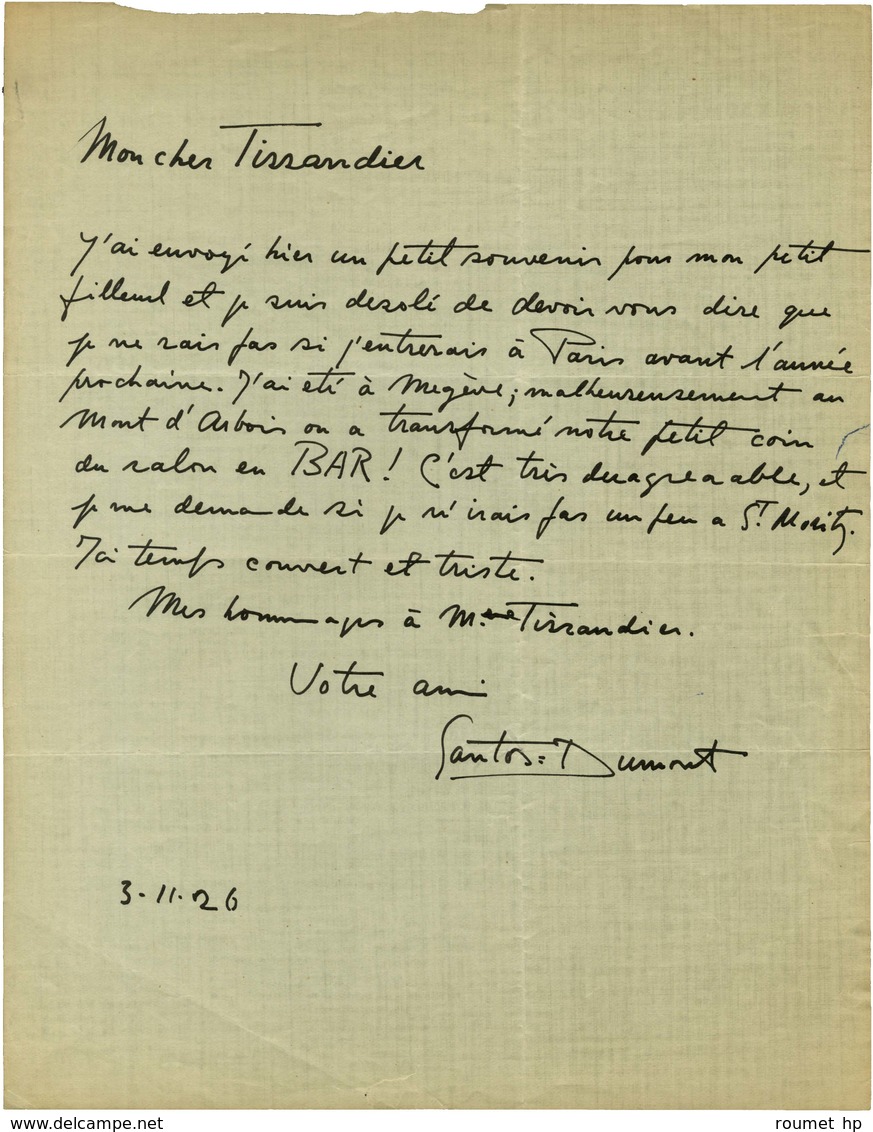 Mon cher Tissandier
J'ai envoyé hier un petit souvenir pour mon petit
filleul et je suis desolé de devoir vous dire que
je ne sais pas si j'entrerais à Paris avant l'année
prochaine. J'ai été à Megève; malheureusement au
Mont d'Arbois on a transformé notre petit coin
du salon en BAR! C'est très desagreable, et
je me demande si je n'irais pas un peu a St Moritz.
Ici temps couvert et triste.
Mes hommages à Mme Tissandier.
Votre ami
Santos=Dumont
3-11-26
www.delcampe.net
roumet hp